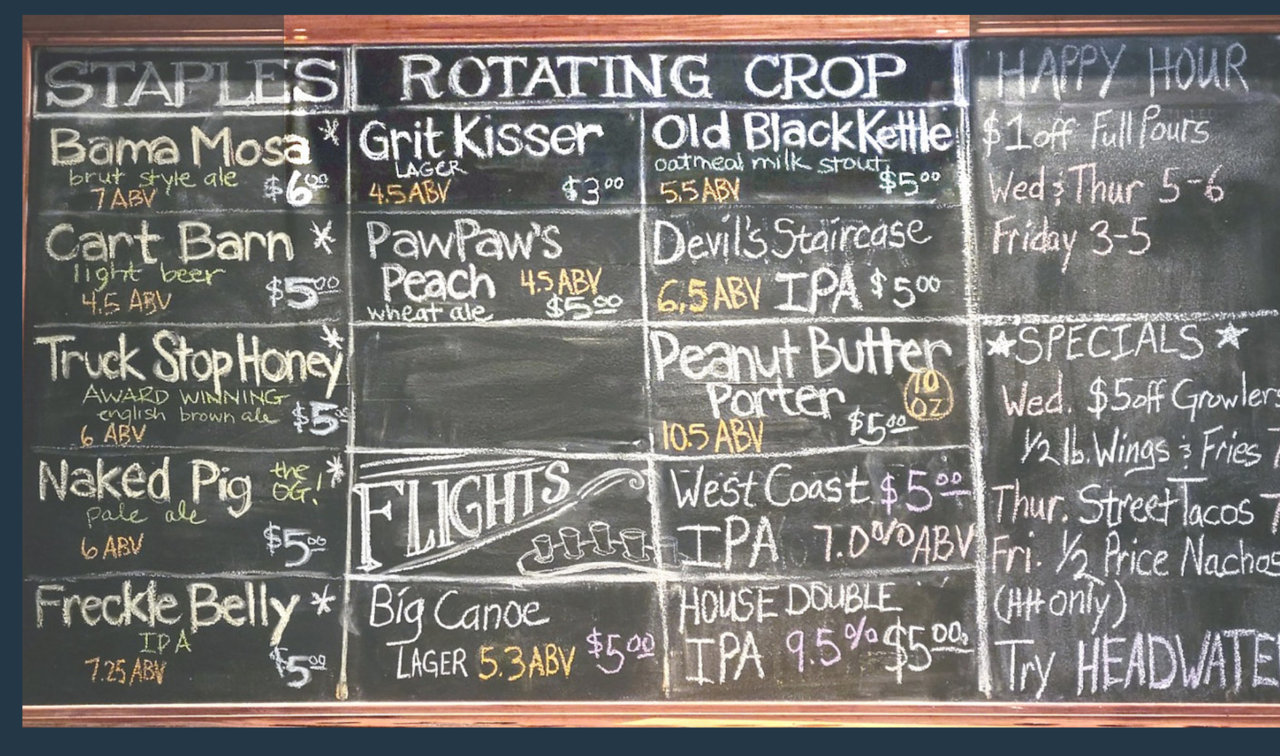 STAPLES
Bama Mosa *
brut style ale
7 ABV $6.00
Cart Barn *
light beer
4.5 ABV $5.00
Truck Stop Honey *
AWARD WINNING
english brown ale $5
6 ABV
Naked Pig the OG! *
pale ale
6 ABV $5.00
Freckle Belly *
IPA
7.25 ABV $5.00
ROTATING CROP
Grit Kisser
LAGER
4.5 ABV $3.00
PawPaw's
Peach 4.5 ABV
wheat ale $5.00
FLIGHTS
Big Canoe
LAGER 5.3 ABV $5.00
Old Black Kettle
oatmeal milk stout
5.5 ABV $5.00
Devil's Staircase
6.5 ABV IPA $5.00
Peanut Butter
Porter 10 OZ
10.5 ABV $5.00
West Coast $5.00
IPA 7.0% ABV
HOUSE DOUBLE
IPA 9.5% $5.00
HAPPY HOUR
$1 off Full Pours
Wed & Thur 5-6
Friday 3-5
★ SPECIALS ★
Wed. $5 off Growlers
1/2 lb. Wings & Fries
Thur. Street Tacos
Fri. 1/2 Price Nachos
(HH only)
Try HEADWATE